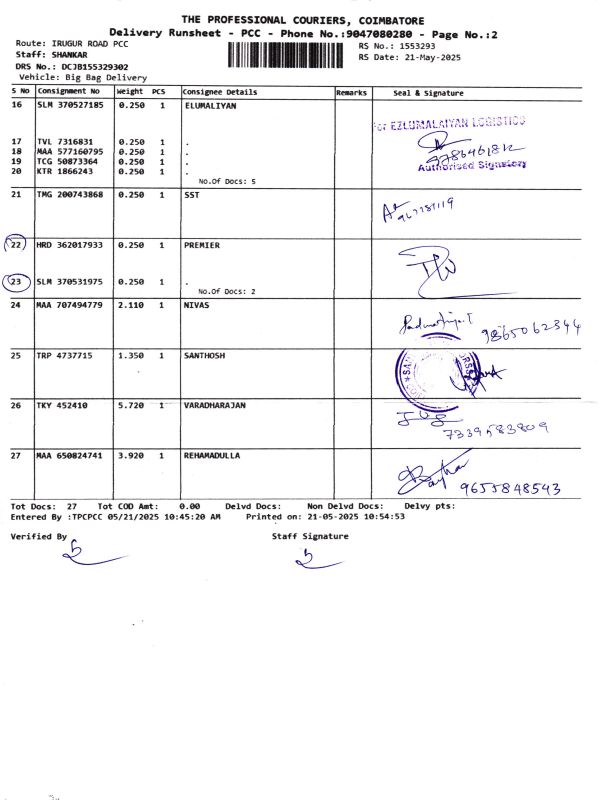 THE PROFESSIONAL COURIERS, COIMBATORE
Delivery Runsheet - PCC - Phone No.:9047080280 - Page No.:2
Route: IRUGUR ROAD PCC
RS No.: 1553293
Staff: SHANKAR
RS Date: 21-May-2025
DRS No.: DCJB155329302
Vehicle: Big Bag Delivery
S No Consignment No Weight PCS Consignee Details Remarks Seal & Signature
16 SLM 370527185 0.250 1 ELUMALIYAN
For EZLUMALAIYAN LOGISTICS
17 TVL 7316831 0.250 1 .
18 MAA 577160795 0.250 1 .
9786461812
19 TCG 50873364 0.250 1 .
Authorised Signatory
20 KTR 1866243 0.250 1 .
No.Of Docs: 5
21 TMG 200743868 0.250 1 SST
22 HRD 362017933 0.250 1 PREMIER
23 SLM 370531975 0.250 1 .
No.Of Docs: 2
24 MAA 707494779 2.110 1 NIVAS
9865062344
25 TRP 4737715 1.350 1 SANTHOSH
26 TKY 452410 5.720 1 VARADHARAJAN
7339583809
27 MAA 650824741 3.920 1 REHAMADULLA
9655848543
Tot Docs: 27 Tot COD Amt: 0.00 Delvd Docs: Non Delvd Docs: Delvy pts:
Entered By :TPCPCC 05/21/2025 10:45:20 AM Printed on: 21-05-2025 10:54:53
Verified By Staff Signature